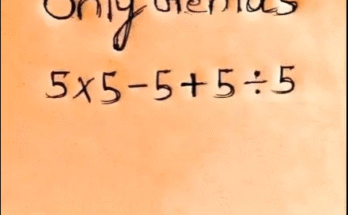 Only
5×5−5+5÷5